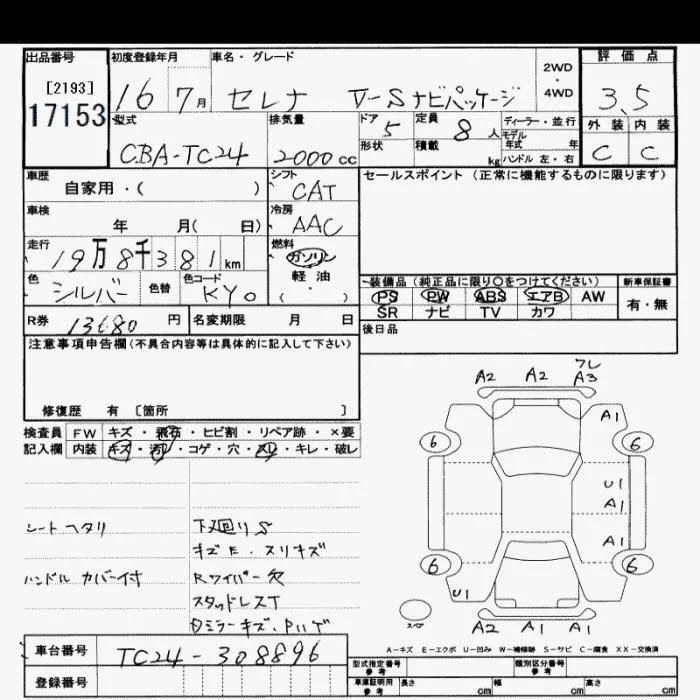 出品番号 初度登録年月 車名・グレード 評価点
[2193]
17153
16 7月 セレナ V-Sナビパッケージ
2WD
・
4WD
3.5
型式 排気量 ドア 定員 ディーラー・並行 外装 内装
CBA-TC24 2000cc 5 8人
モデル
年式 年
形状 積載 kg ハンドル 左・右
C C
車歴 シフト セールスポイント (正常に機能するものに限ります)
自家用・( ) CAT
車検 冷房
年 月( 日) AAC
走行 燃料
19万8千381km ガソリン
軽油
( ・ )
装備品 (純正品に限り○をつけてください) 新車保証書
色 色替 色コード
シルバー KY0
PS PW ABS エアB AW 有・無
SR ナビ TV カワ
R券 13680円 名変期限 月 日
後日品
注意事項申告欄(不具合内容等は具体的に記入して下さい)
修復歴 有 [箇所 ]
検査員 FW キズ・飛石・ヒビ割・リペア跡・×要
記入欄 内装 キズ・汚レ・コゲ・穴・スレ・キレ・破レ
A2 A2 フレ A3
A1
6 6
U1
A1
A1
6 6
U1
スペア
A2 A1 A1
シートヘタリ
下廻りS
キズE・スリキズ
ハンドルカバー付 Rワイパー欠
スタッドレスT
ミラーキズ・
A-キズ E-エクボ U-凹み W-補修跡 S-サビ C-腐食 XX-交換済
車台番号 TC24-308896
型式指定番号 参考 類別区分番号 参考
登録番号 車庫証明用 参考 長さ cm 幅 cm 高さ cm